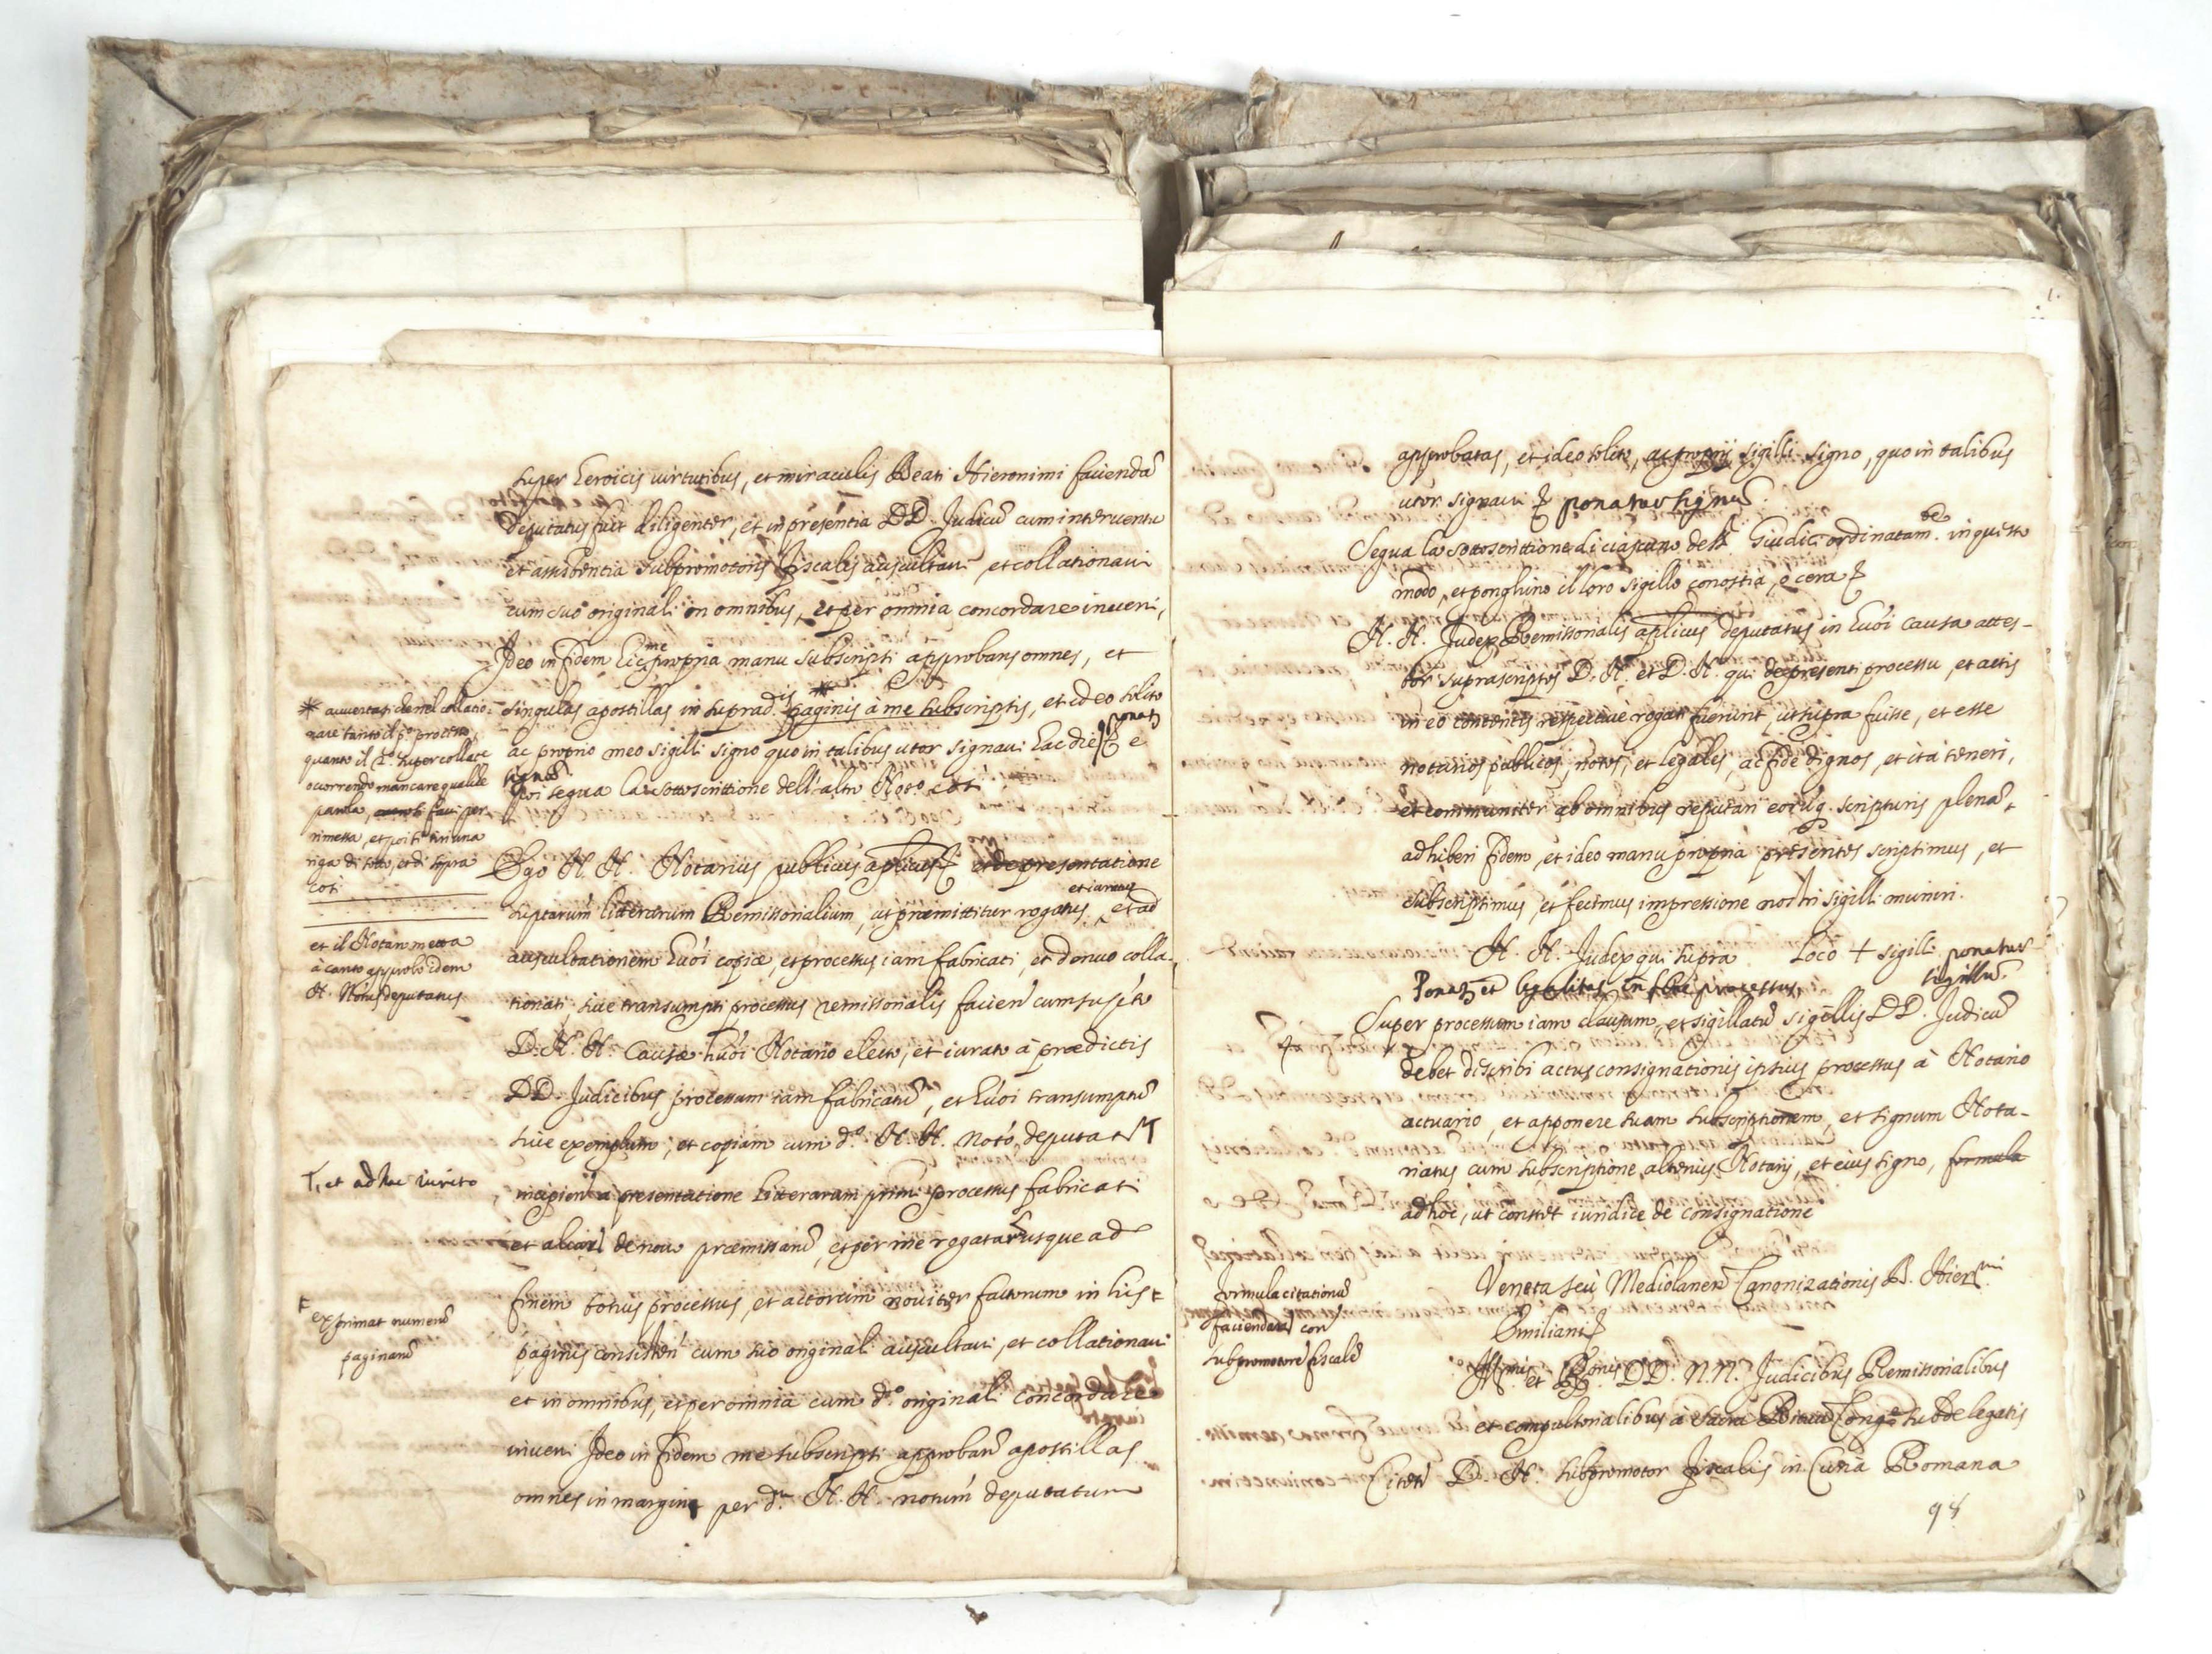 super heroicis virtutibus, et miraculis Beati Hieronimi faciendã
deputatus fuit diligenter, et in presentia DD. Judicũ cum interventu
et assistentia subpromotoris Fiscalis auscultavi et collationavi
cum suo originali in omnibus, et per omnia concordare inveni,
Ideo in fidem hic me propria manu subscripsi approbans omnes, et
singulas apostillas in suprad.is * paginis à me subscriptis, et ideo solito
ac proprio meo sigilli signo quo in talibus utor signavi hac die ponatr
signũ e
poi segua la sottoscrittione dell'altro Noto. così
* auvertasi che nel collatio-
nare tanto il p.o processo,
quanto il 2.o
occorrendo mancare qualche
parola, si facci per
rimessa, et poi si tiri una
riga di sotto, et di sopra
così
et il Notaro metta
à canto approbo idem
N. Notus deputatus
Ego N. N. Notarius publicus aplicus et de presentatione
suptarum litterarum Remissorialium, ut præmittitur rogatus, et ad
auscultationem huõi copiæ, et processus iam fabricati, et denuo colla-
tionati, sive transumpti processus remissorialis facien cum
D. N. N. Causæ huõi Notario electo, et iurato à prædictis
DD. Judicibus processum iam fabricatũ, et huõi transumptũ
sive exemplum, et copiam cum d.o N. N. Noto, deputato
T, et ad hoc iurato
incipien à presentatione litterarum primi processus fabricati
et aliarũ de novo præmissarũ, et per me rogatarũ usque ad
finem totius processus, et actorum noviter factorum in his +
+ exprimat numerũ
paginarũ
paginis consisten cum suo originali auscultavi, et collationavi
et in omnibus, et per omnia cum d.o originali concordare
inveni Ideo in fidem me subscripsi approbans apostillas
omnes in margine per d.um N. N. notum deputatum
approbatas, et ideo solito, ac proprij sigilli signo, quo in talibus
utor signavi ponatur signũ.
Segua la sottoscrittione di ciascuno delli Giudici ordinatam.te in questo
modo, et ponghino il loro sigillo con ostia, o cera
N. N. Judex Remissorialis aplicus deputatus in huõi causa attes-
tor suprascriptos D. N. et D. N. qui de presenti processu, et actis
in eo contentis respective rogati fuerunt, ut supra fuisse, et esse
notarios publicos, notos, et legales, ac fide dignos, et ità teneri,
et communiter ab omnibus reputari eorũq. scripturis plenã
adhiberi fidem, et ideo manu propria presentes scripsimus, et
subscripsimus, et fecimus impressione nostri sigilli muniri.
N. N. Judex qui supra Loco + sigilli ponatur
sigillũ.
Ponatr et legalitas in fine processus,
Super processum iam clausum, et sigillatũ sigillis DD. Judicũ
debet describi actus consignationis ipsius processus à Notario
actuario, et apponere suam subscriptionem, et signum Nota-
riatus cum subscriptione alterius Notarij, et eius signo, formula
ad hoc, ut constet iuridice de consignatione
Formula citationũ
faciendarũ con
subpromotore fiscale
Veneta seù Mediolanen Canonizationis B. Hier.mi
Emiliani
Ill.mis et R.mis DD. N.N. Judicibus Remissorialibus
et compulsorialibus à Sacra Rituũ Cong.e subdelegatis
Citetr D. N. subpromotor Fiscalis in Curia Romana
98